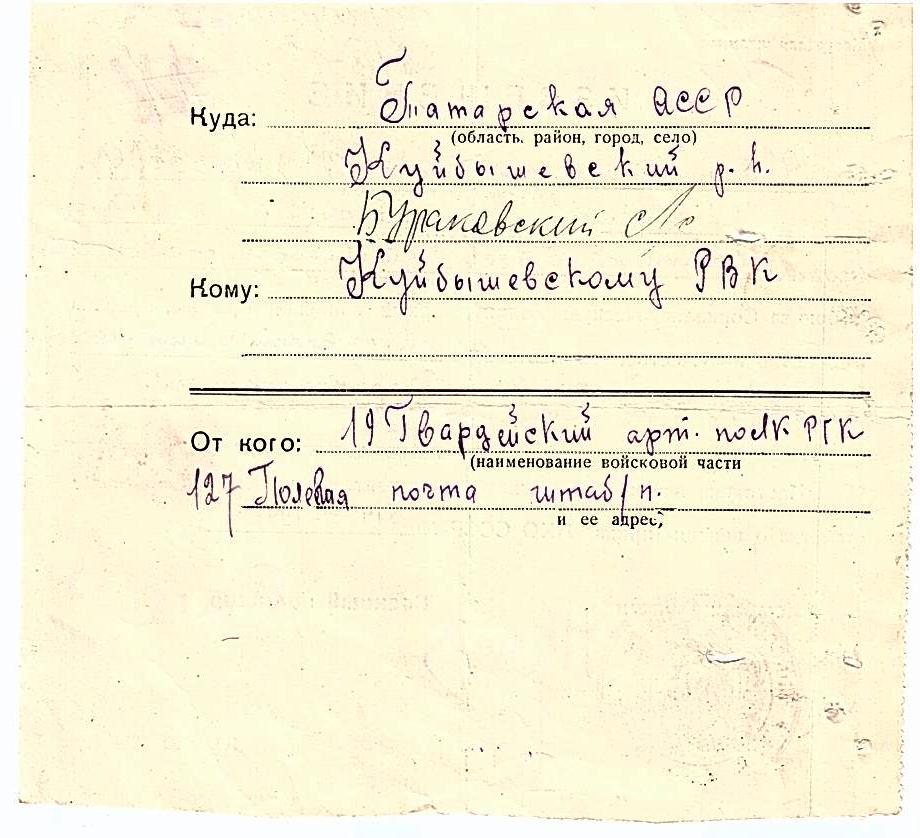 Куда: Татарская АССР
(область, район, город, село)
Куйбышевский р. н.
Бураковский с/с
Кому: Куйбышевскому РВК
От кого: 19 Гвардейский арт. полк РГК
(наименование войсковой части
127 Полевая почта штаб/п.
и ее адрес)